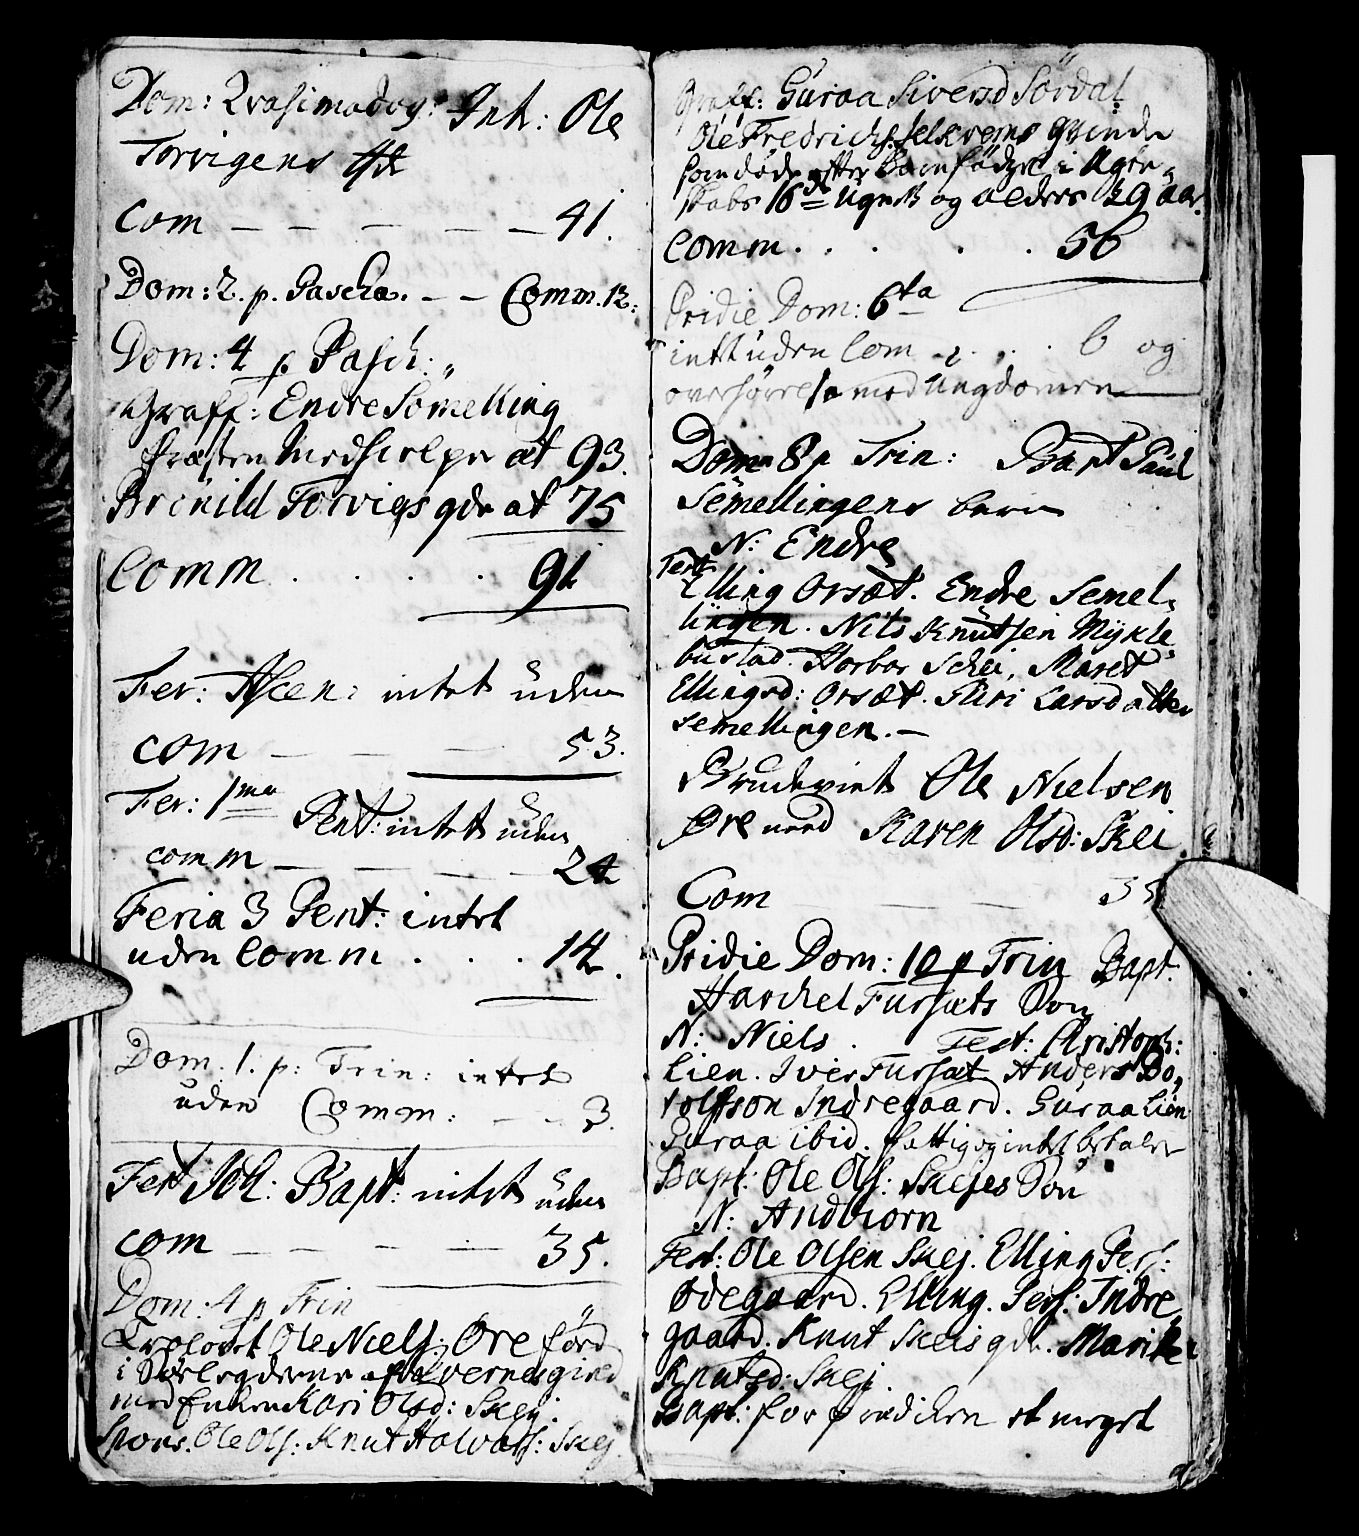 Dom: Qvasimodog: Int: Ole
Torvigens
Com — — — — — 41.
Dom: 2. p. Pascha. — — Comm. 12.
Dom: 4 p Pasch:
Graff: Endre Semelling
Præsten Medhielper æt 93.
Brönild Torvigs qde æt 75
Comm . . . . 91
Fer: Ascen: intet uden
Com — — — 53.
Fer: 1ma Pent: intet uden
comm — — — — 24
Feria 3 Pent: intet
uden Comm . . . 14.
Dom. 1. p: Trin: intet
uden Comm: — — 3.
Fest Joh: Bapt: intet uden
Com — — — — 35.
Dom: 4 p Trin
Trolovet Ole Niels: Øre förd
i
med Enken Kari Olsd: Skej.
Spons. Ole Ols: Knut Halvors: Skej
Graff: Guraa Siversd Sördal
Ole Fredrichs. Qvinde
som døde efter Barnfödsel i Ægte-
skabs 16de Ugers og alders 29 aar.
Comm . . . . 56
Pridie Dom: 6ta
intet uden Com . . . 6 og
overhörelse med Ungdomen
Dom 8 p Trin: Bapt Paul
Semellingens barn
N: Endre
Test
Elling Orsæt. Endre Semel-
lingen. Nils Knutsen Mykle
bustad. Horbor Schei, Maret
Ellingsd: Orsæt. Siri Larsdatter
Semellingen. —
Brudeviet Ole Nielsen
Øre med Karen Olsd: Skei
Com — — — 35
Pridie Dom: 10 p Trin Bapt.
Harchel Fursæts Sön
N: Niels. Test: Christoph:
Lien. Iver Fursæt Anders Bo-
tolfson Indregaard. Guraa Lien
Guraa ibid. fattig og intet betaler
Bapt: Ole Ols: Skejes Sön
N: Andbiorn
Test: Ole Olsen Skej. Elling Pers:
Ødegaard. Elling. Pers: Indre
gaard. Knut Skeis qde. Marit
Knutsd: Skej.
Bapt: for Prædiken et meget